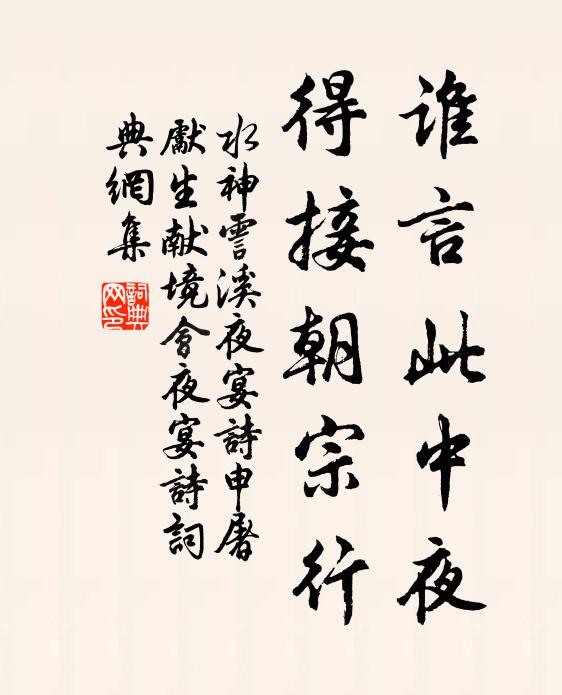 谁言此中夜
得接朝宗行
水神霅溪夜宴詩申屠
獻生献境會夜宴詩詞
典網集
詞典
网印